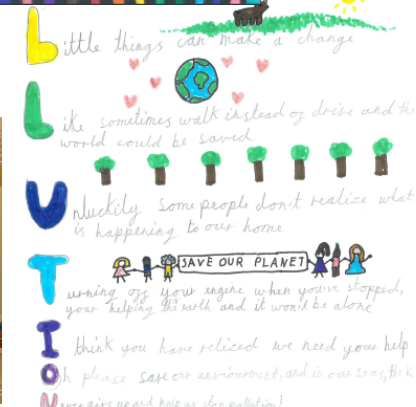 Little things can make a change
Like sometimes walk instead of drive and the
world could be saved
Unluckily some people don't realize what
is happening to our home
SAVE OUR PLANET
Turning off your engine when you've stopped,
your helping the earth and it won't be alone
I think you have reliced we need your help
Oh please save our enviourment, and in our seas, the
Never give up and help us stop pollution!